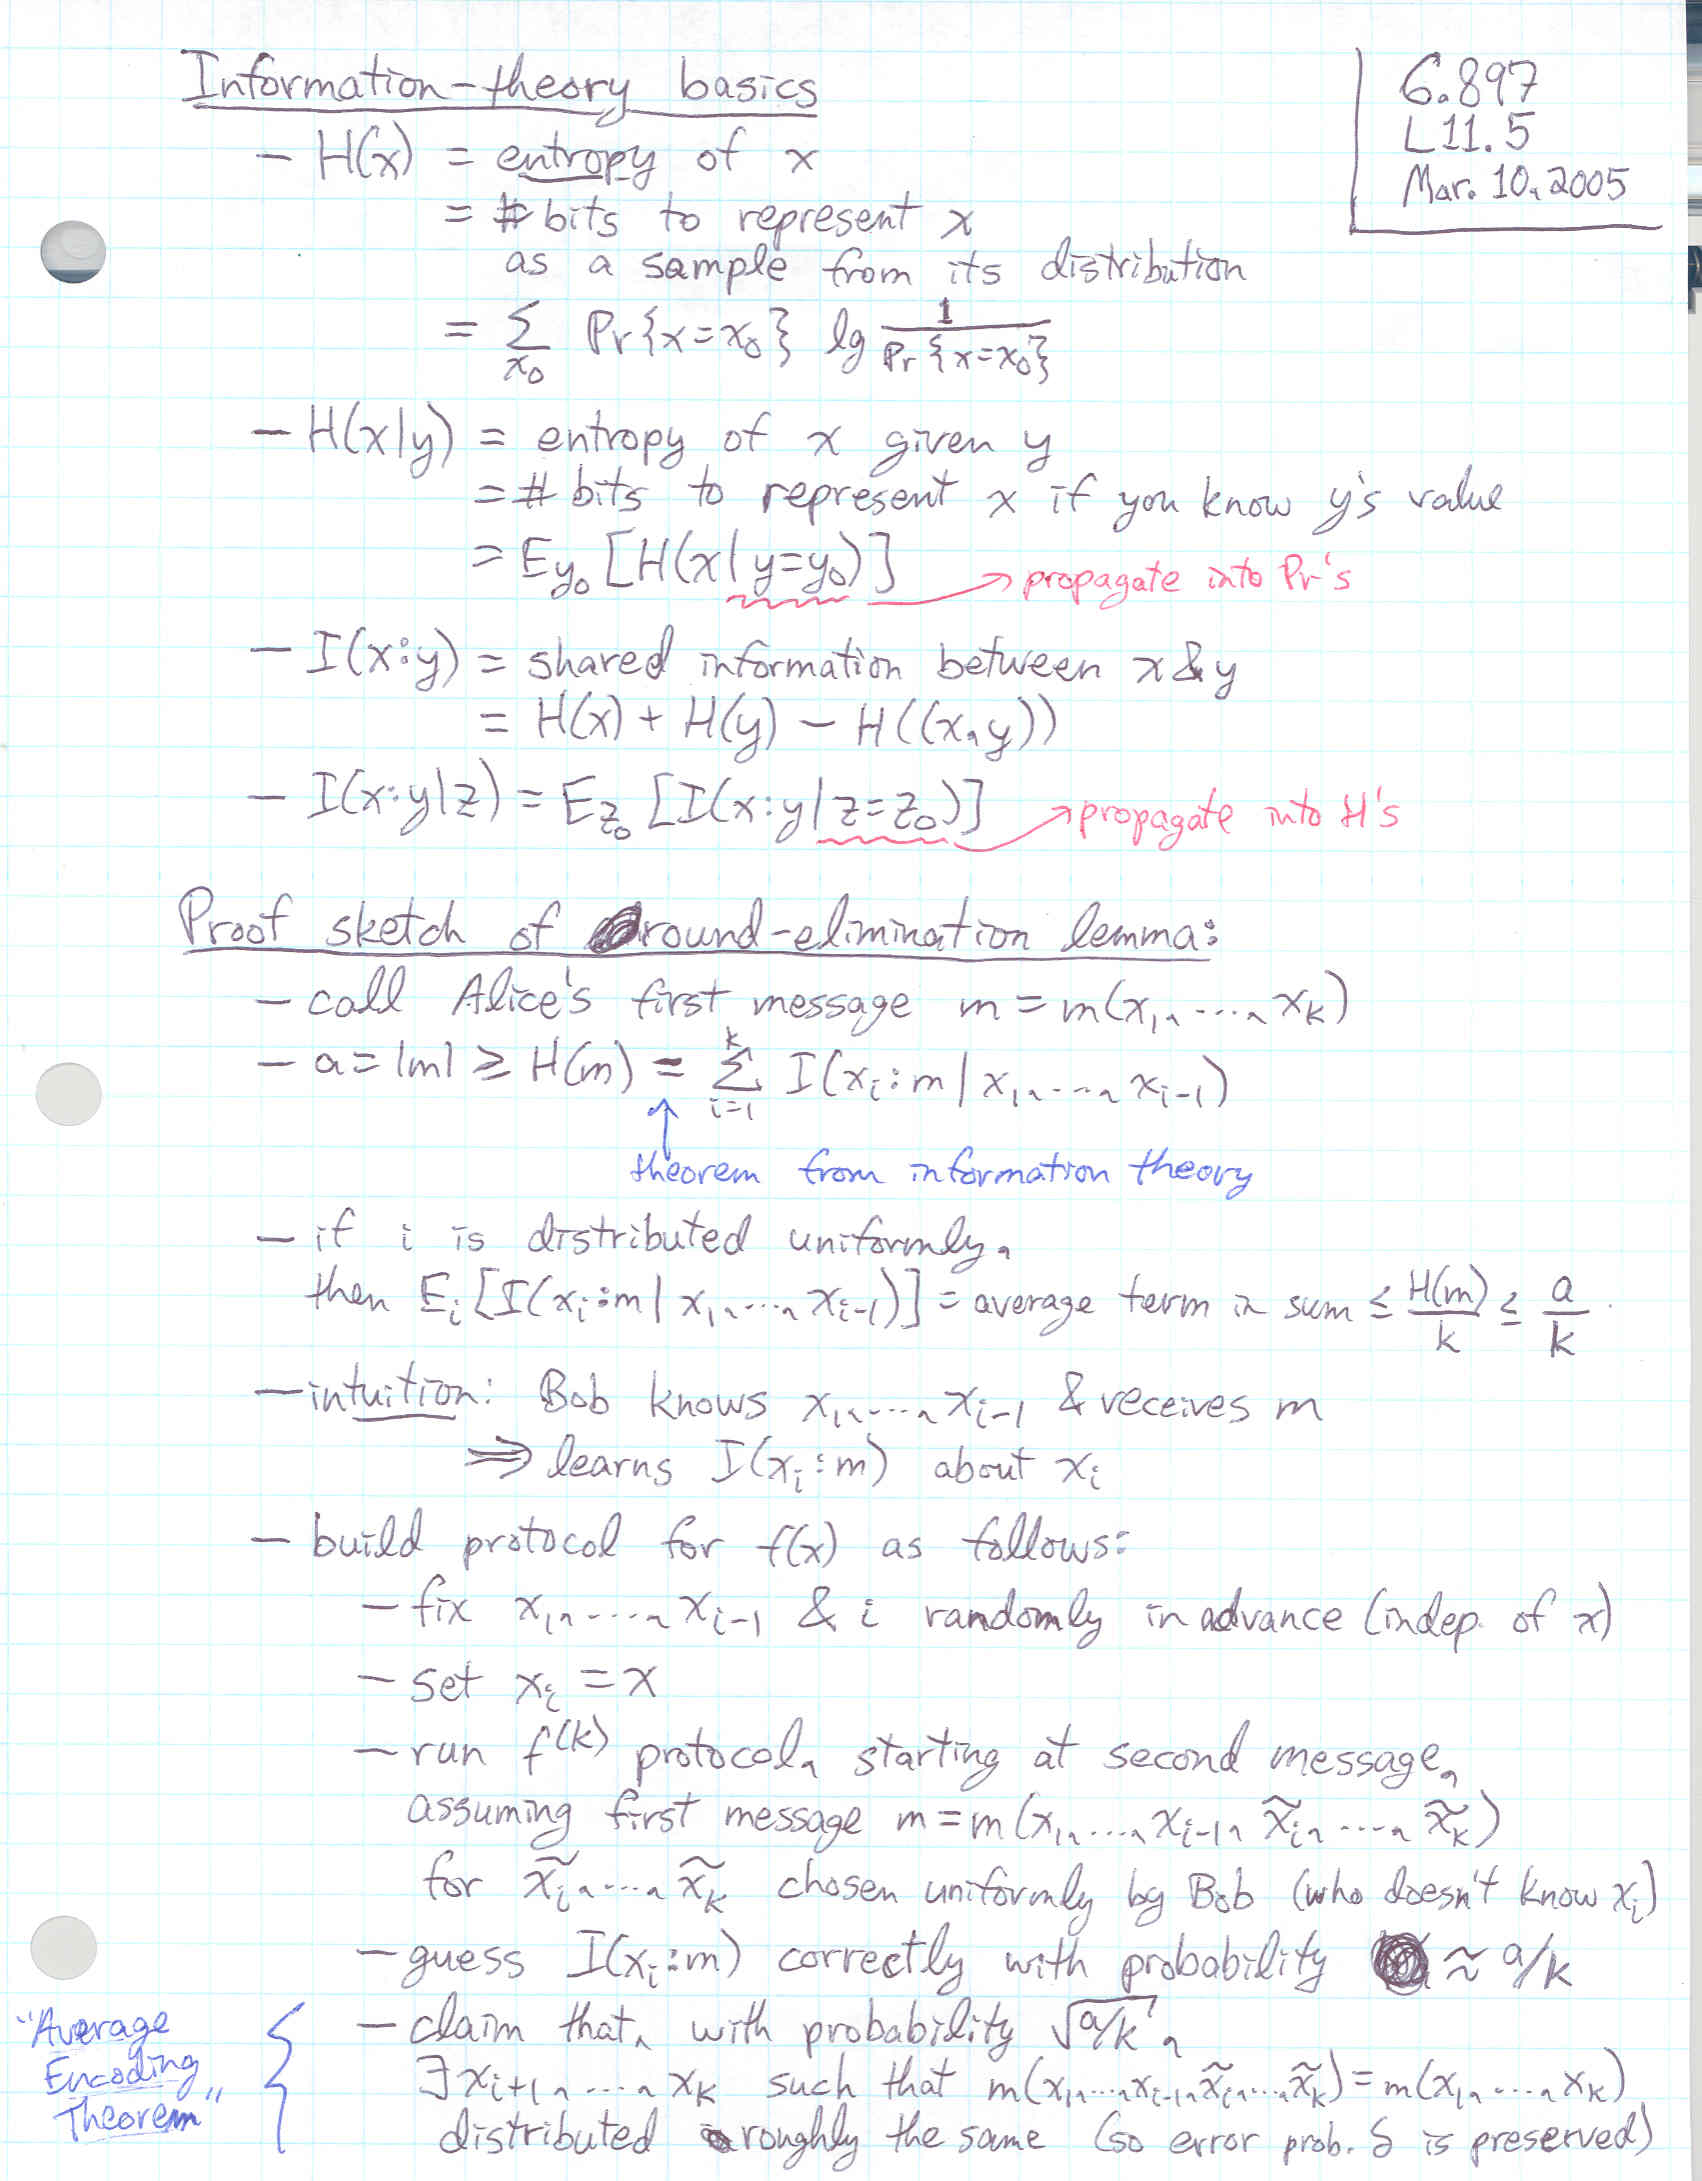 Information-theory basics
6.897
L11.5
Mar. 10, 2005
- H(x) = entropy of x
= # bits to represent x
as a sample from its distribution
= Σ_{x₀} Pr{x=x₀} lg 1/Pr{x=x₀}
- H(x|y) = entropy of x given y
= # bits to represent x if you know y's value
= E_{y₀} [H(x|y=y₀)] → propagate into Pr's
- I(x:y) = shared information between x & y
= H(x) + H(y) - H((x,y))
- I(x:y|z) = E_{z₀} [I(x:y|z=z₀)] → propagate into H's
Proof sketch of round-elimination lemma:
- call Alice's first message m = m(x₁, ..., x_k)
- a = |m| ≥ H(m) = Σ_{i=1}^{k} I(x_i : m | x₁, ..., x_{i-1})
↑
theorem from information theory
- if i is distributed uniformly,
then E_i [I(x_i : m | x₁, ..., x_{i-1})] = average term in sum ≤ H(m)/k ≤ a/k
- intuition: Bob knows x₁, ..., x_{i-1} & receives m
⇒ learns I(x_i : m) about x_i
- build protocol for f(x) as follows:
- fix x₁, ..., x_{i-1} & i randomly in advance (indep. of x)
- set x_i = x
- run f^{(k)} protocol, starting at second message,
assuming first message m = m(x₁, ..., x_{i-1}, x̃_i, ..., x̃_k)
for x̃_i, ..., x̃_k chosen uniformly by Bob (who doesn't know x_i)
- guess I(x_i : m) correctly with probability ≈ a/k
- claim that, with probability √(a/k),
∃ x_{i+1}, ..., x_k such that m(x₁, ..., x_{i-1}, x̃_i, ..., x̃_k) = m(x₁, ..., x_k)
distributed roughly the same (so error prob. δ is preserved)
"Average
Encoding
Theorem"